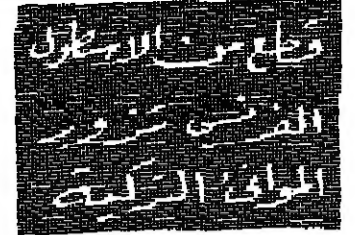 قطع من الاسطول
الفرنسى تزور
الموانئ التركية